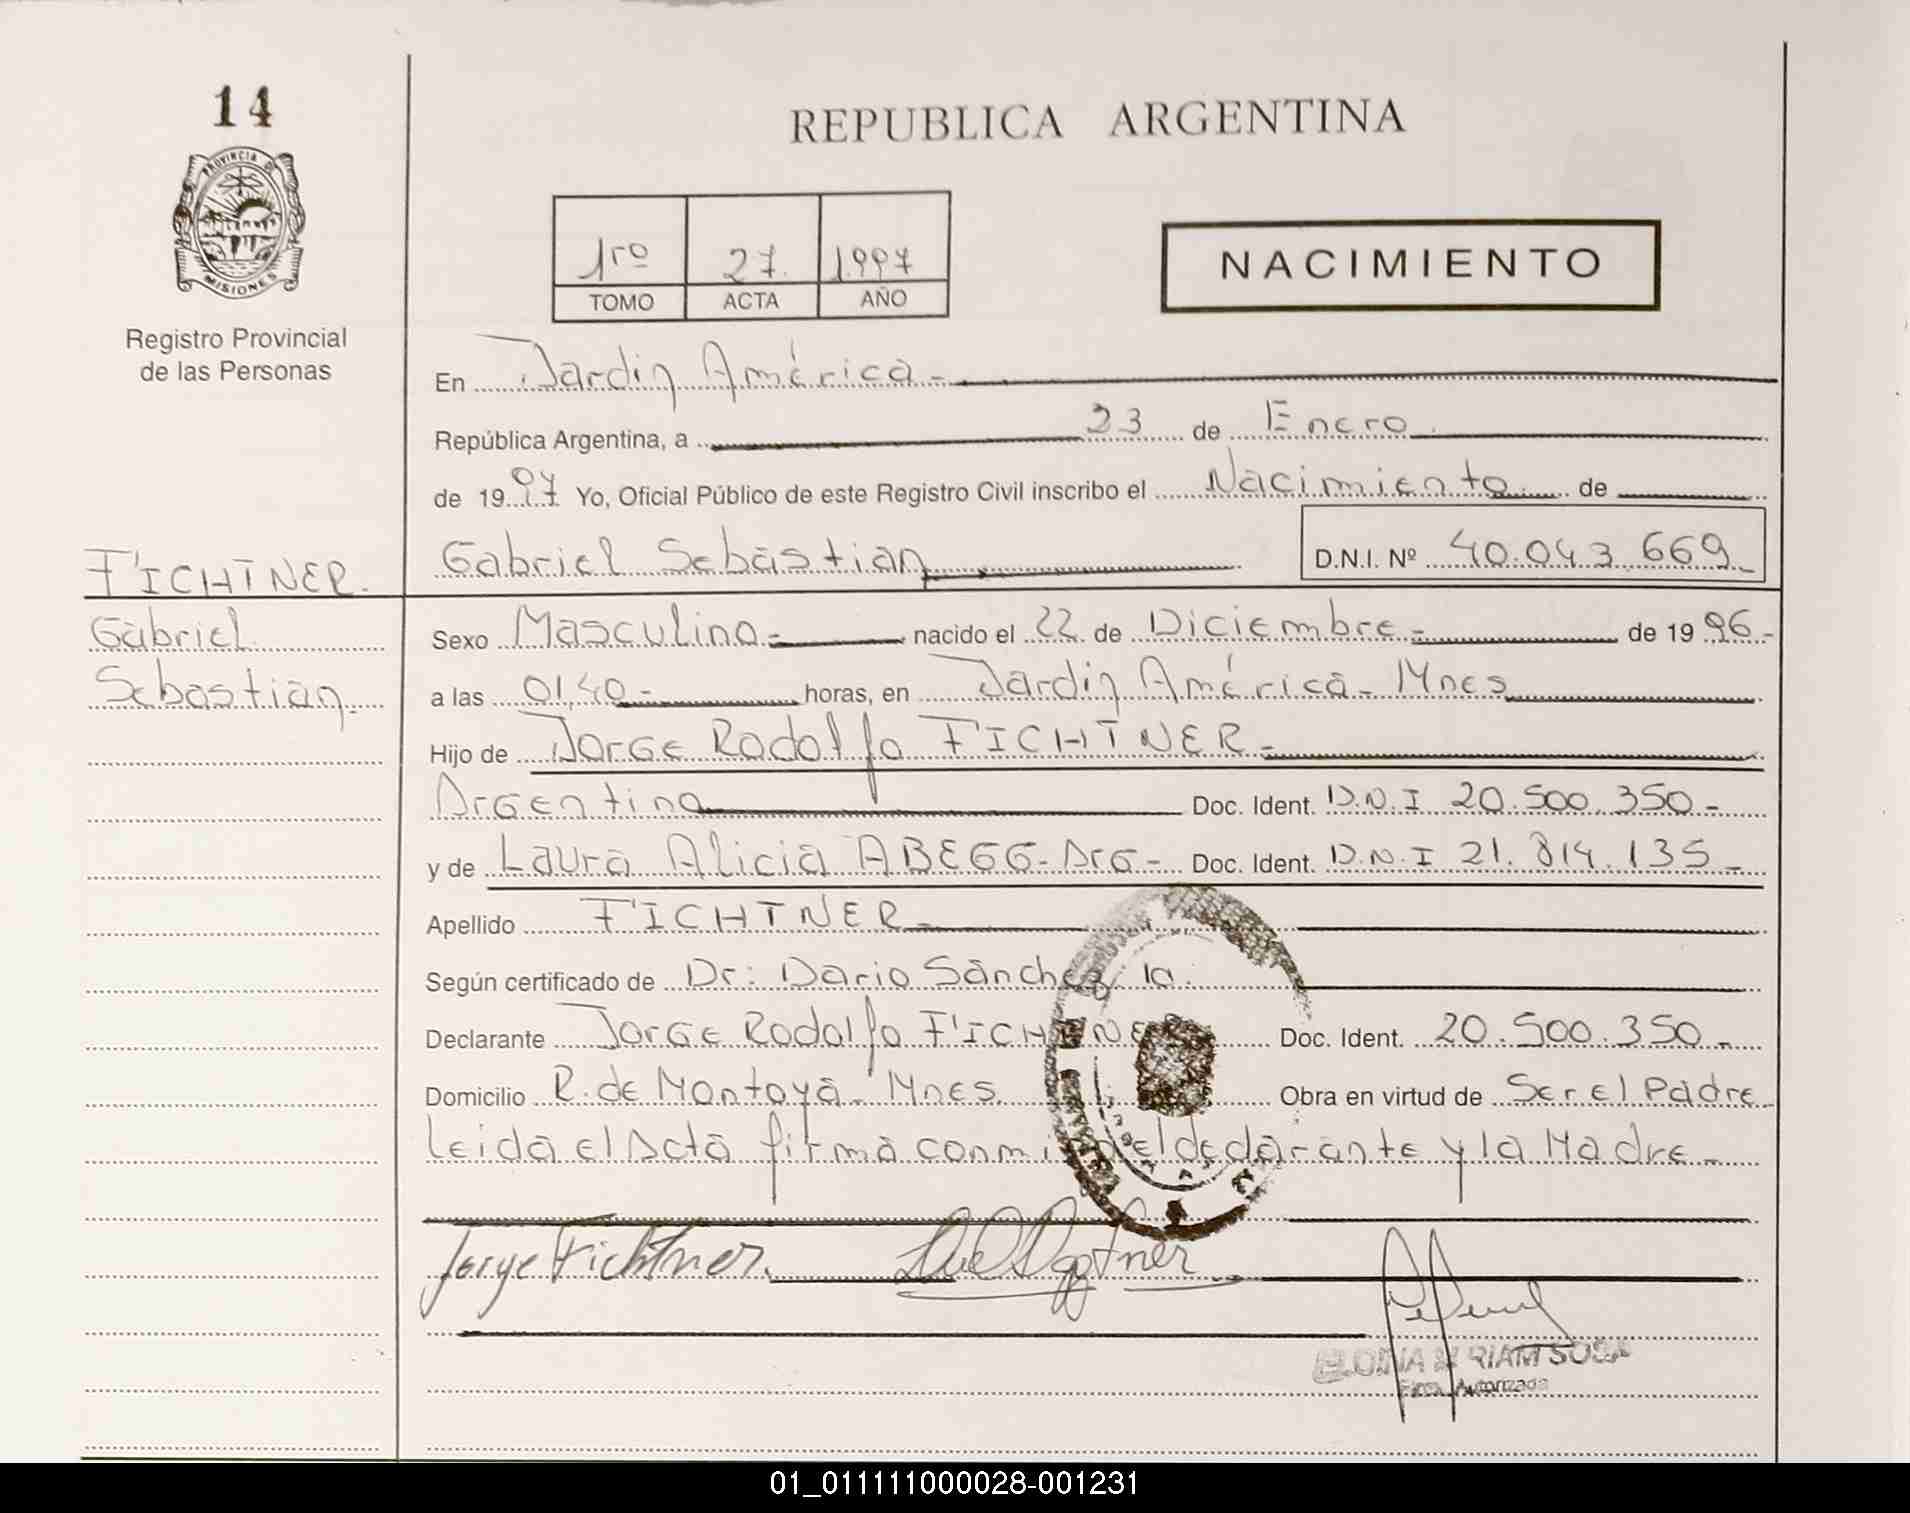 14
PROVINCIA D
MISIONES
Registro Provincial
de las Personas
REPUBLICA ARGENTINA
1ro 27. 1997
TOMO ACTA AÑO
NACIMIENTO
En Jardin América-
República Argentina, a 23 de Enero.
de 1997 Yo, Oficial Público de este Registro Civil inscribo el Nacimiento de
FICHTNER. Gabriel Sebastian D.N.I. Nº 40.043.669-
Gabriel Sexo Masculino- nacido el 22 de Diciembre- de 1996-
Sebastian. a las 01,40- horas, en Jardin América- Mnes
Hijo de Jorge Rodolfo FICHTNER-
Argentino Doc. Ident. D.N.I 20.500.350-
y de Laura Alicia ABEGG- Arg- Doc. Ident. D.N.I 21.814.135-
Apellido FICHTNER-
Según certificado de Dr: Dario Sánchez
Declarante Jorge Rodolfo FICHTNER Doc. Ident. 20.500.350-
Domicilio R. de Montoya- Mnes. Obra en virtud de Ser el Padre
Leida el Acta firma conmigo el declarante y la Madre-
Jorge Fichtner.
RIAM SOSA
Firma Autorizada
01_011111000028-001231